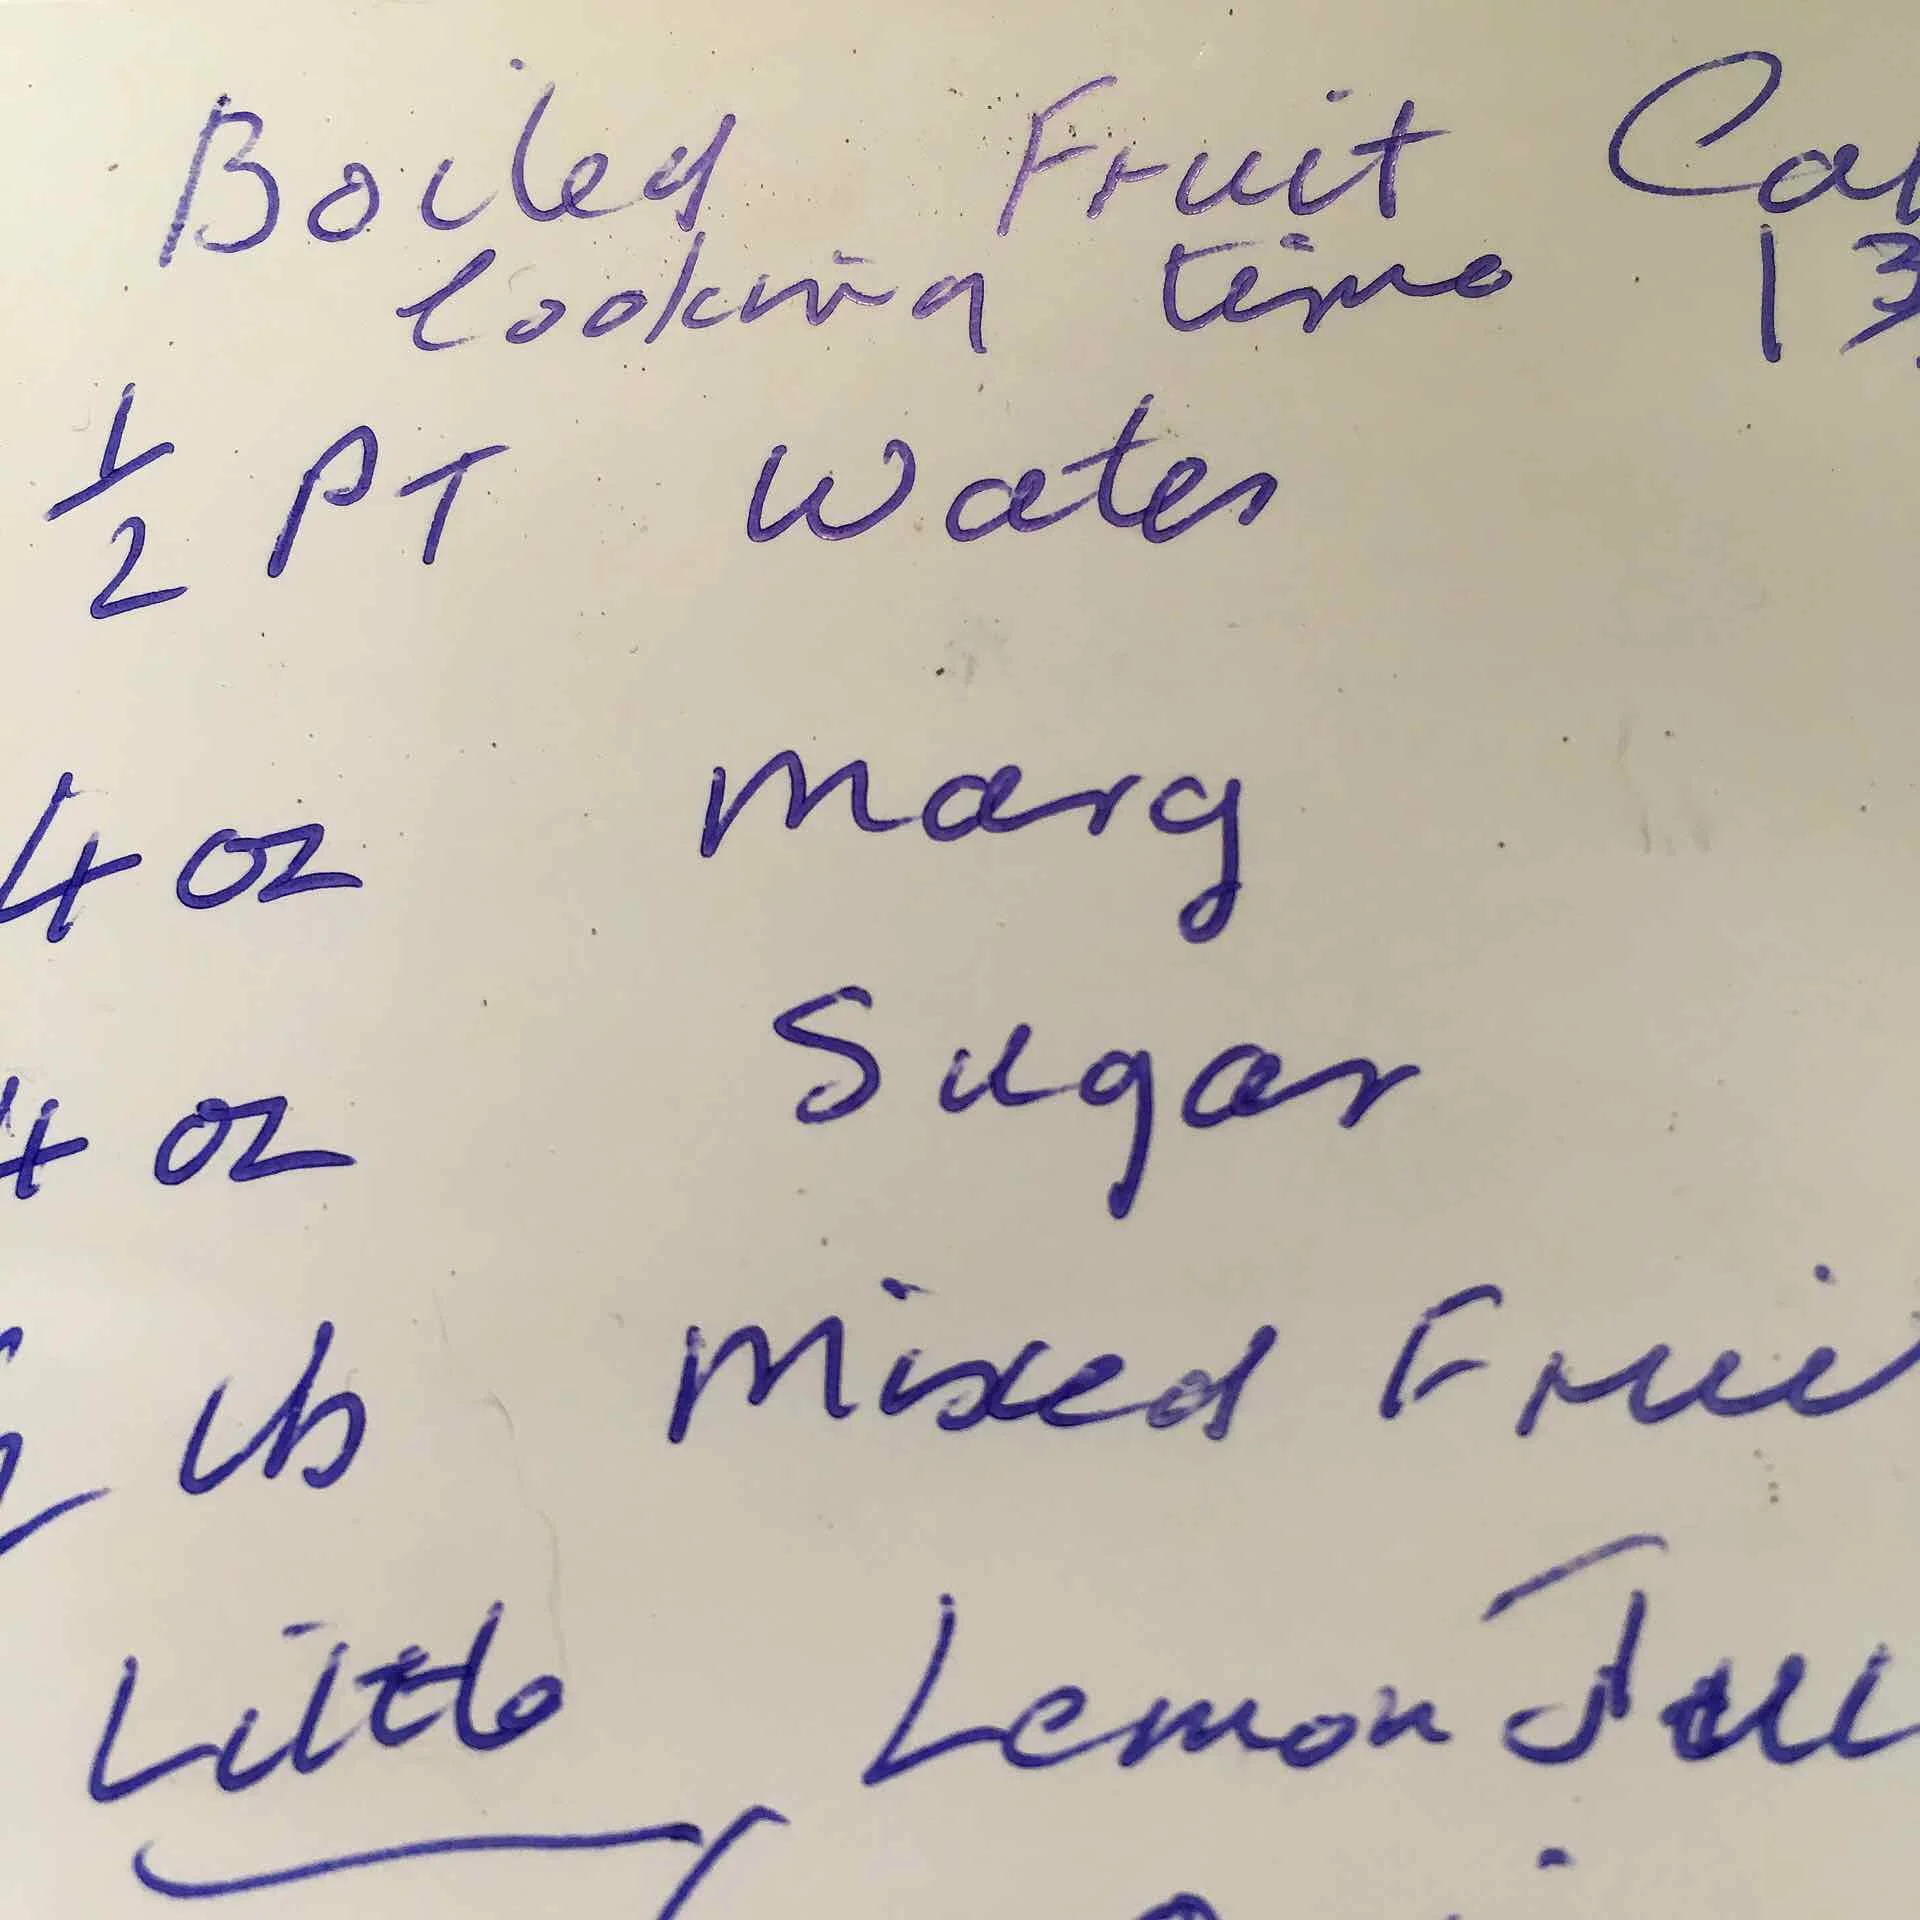 Boiled Fruit Ca
Cooking time 13
1/2 PT Water
4 oz Marg
4 oz Sugar
1/2 lb Mixed Frui
Little Lemon Jui